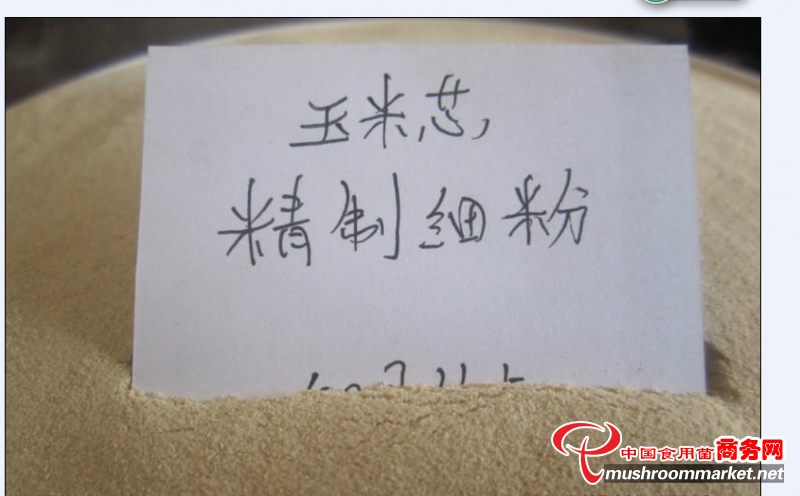 玉米芯,
精制细粉
中国食用菌商务网
mushroommarket.net